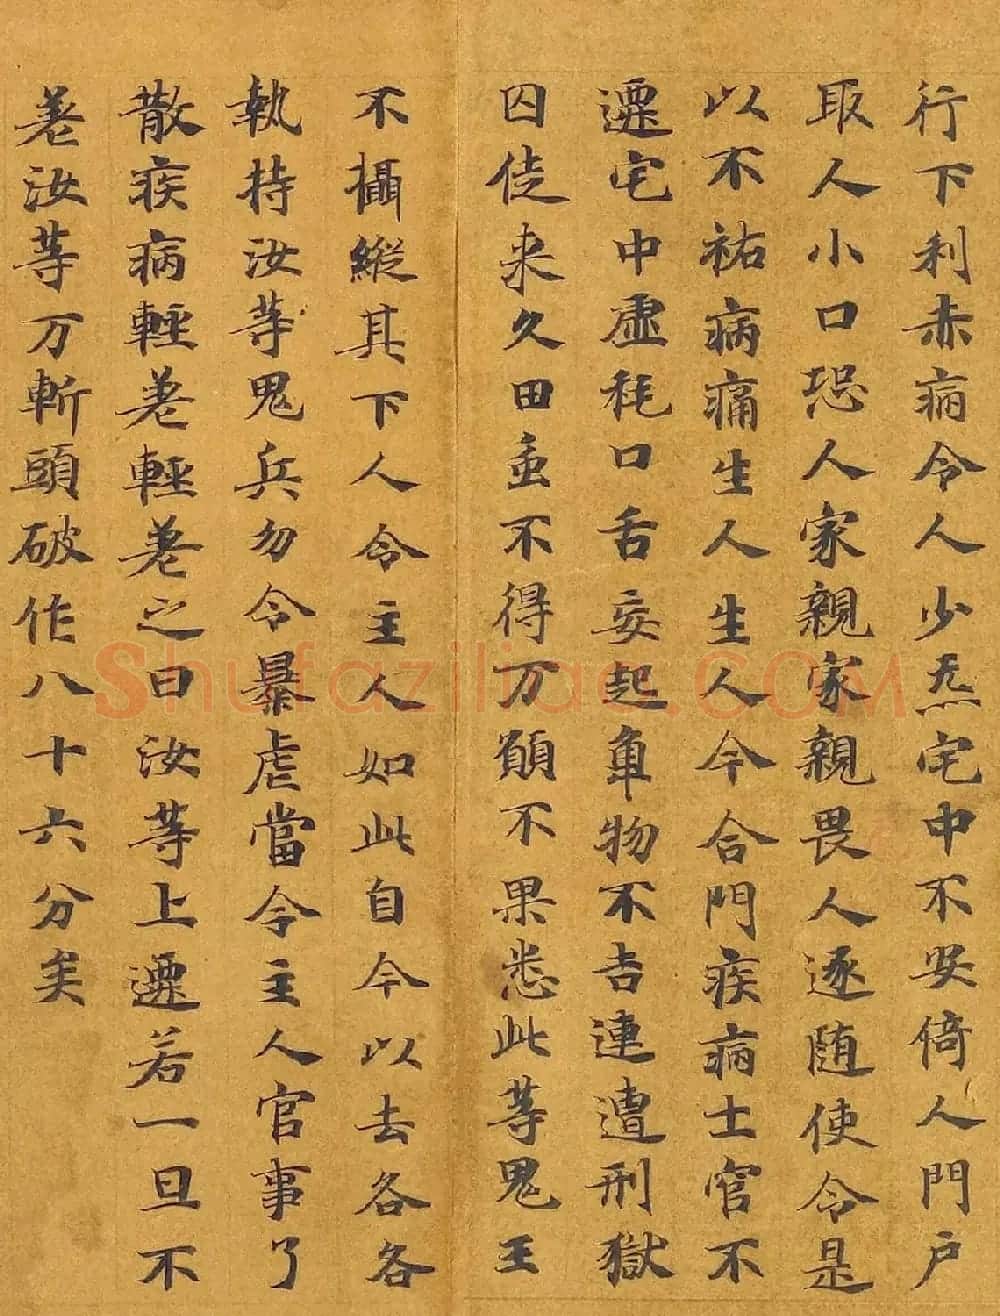 行下利赤病令人少炁宅中不安倚人門户
取人小口恐人家親家親畏人逐随使令是
以不祐病痛生人生人今合門疾病士官不
遷宅中虛耗口舌妄起車物不吉連遭刑獄
囚徒来久田蚕不得万願不果悉此等鬼王
不攝縱其下人令主人如此自今以去各各
執持汝等鬼兵勿令暴虐當令主人官事了
散疾病輕差輕差之日汝等上遷若一旦不
差汝等万斬頭破作八十六分矣
Shufaziliao.COM